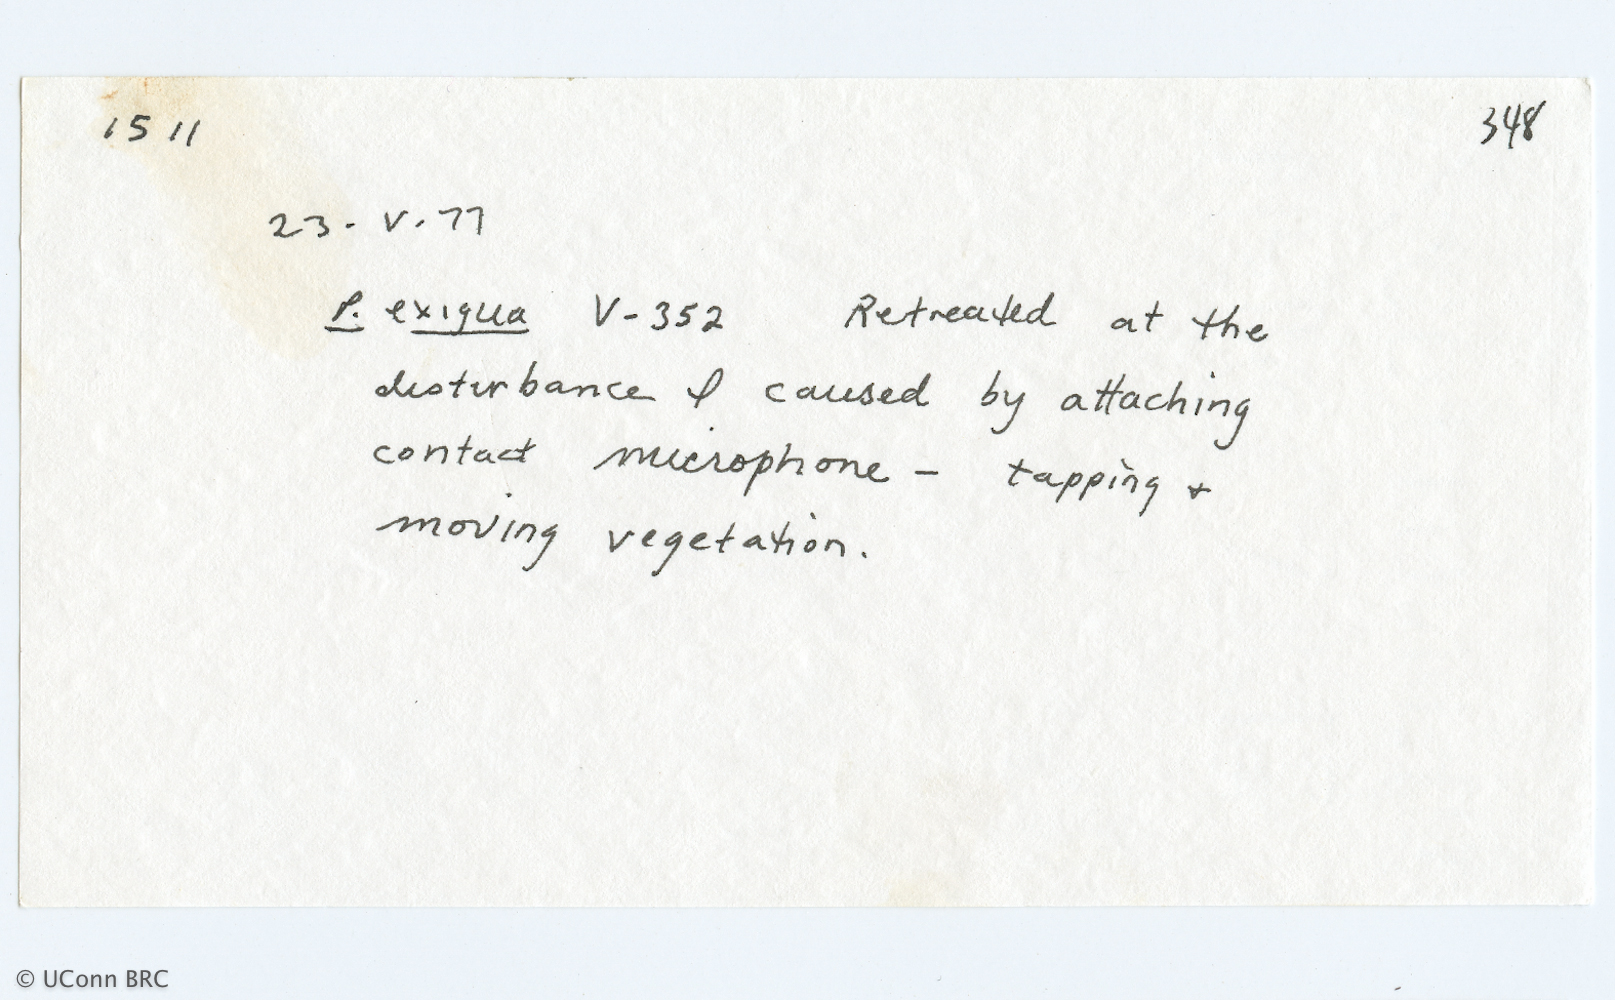 1511
348
23-V-77
P. exigua V-352 Retreated at the
disturbance I caused by attaching
contact microphone - tapping +
moving vegetation.
© UConn BRC